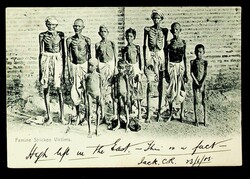 FAMINE STRICKEN VICTIMS.
High life in the East. - This is a fact -
Jack. C.R. 23/2/03